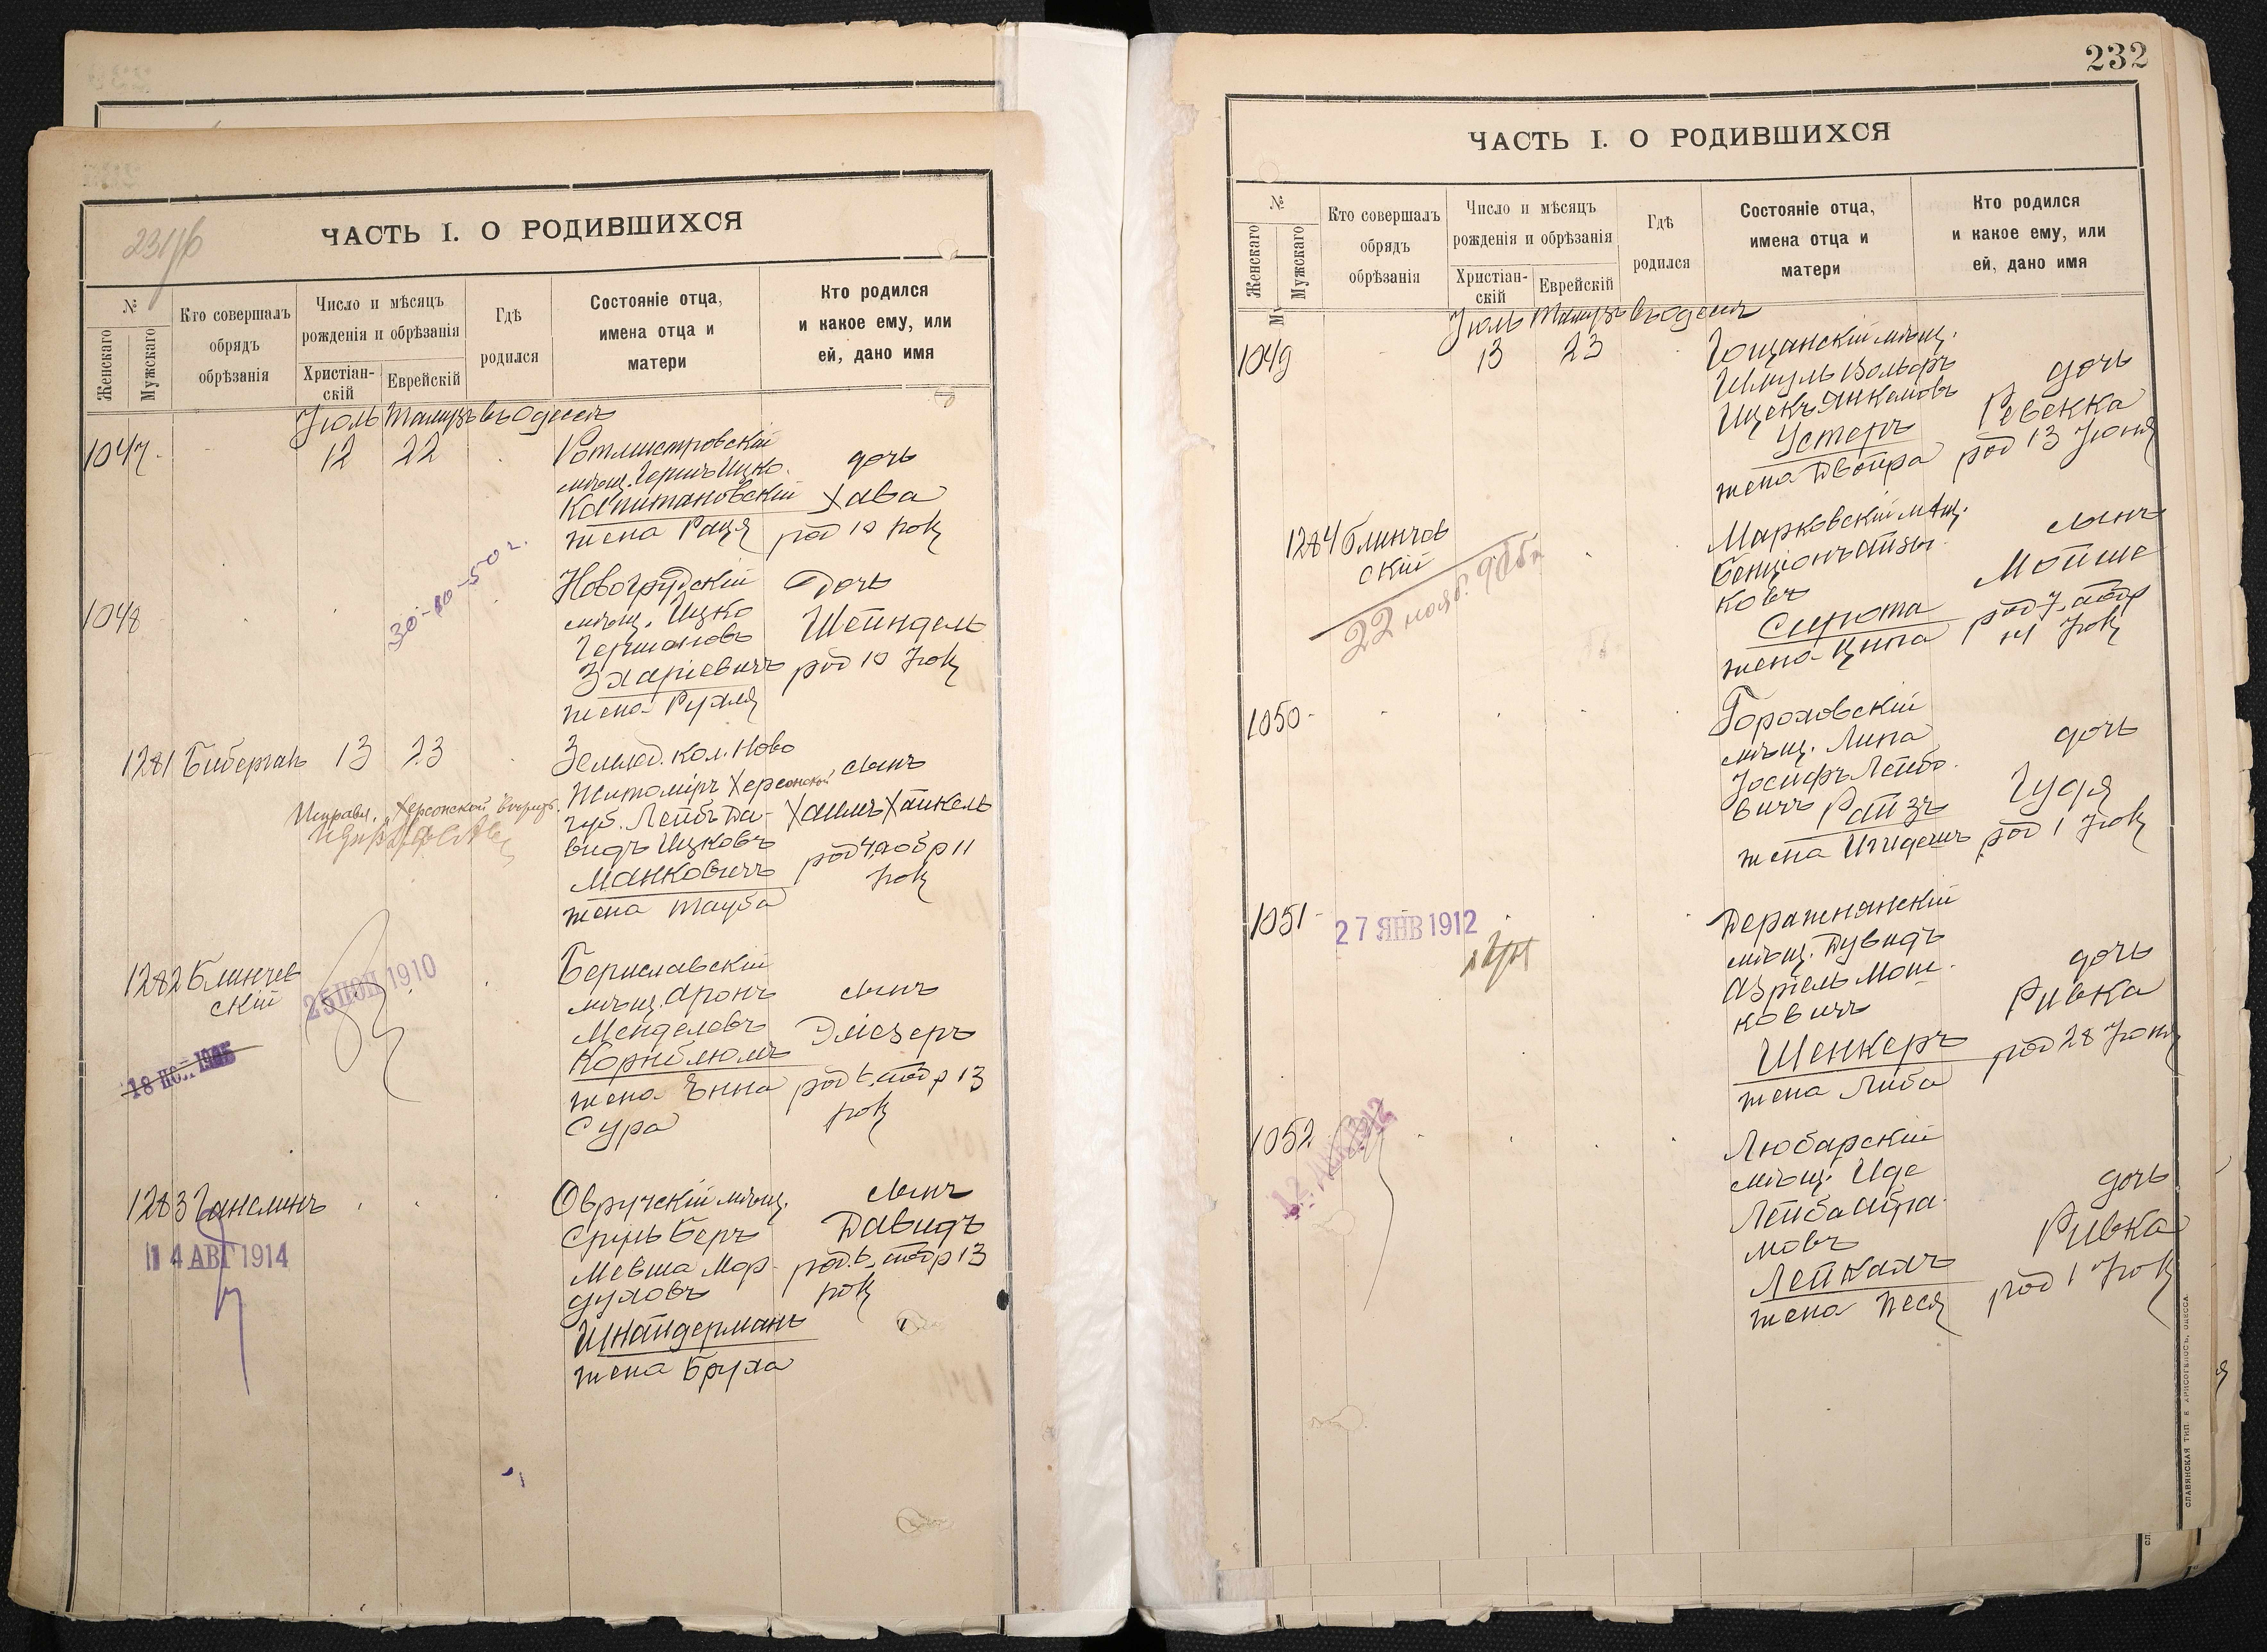 231/б
ЧАСТЬ I. О РОДИВШИХСЯ
№
Женскаго
Мужскаго
Кто совершалъ
обрядъ
обрѣзанія
Число и мѣсяцъ
рожденія и обрѣзанія
Христіан-
скій
Еврейскій
Гдѣ
родился
Состояніе отца,
имена отца и
матери
Кто родился
и какое ему, или
ей, дано имя
Іюль Тамузъ въ Одессѣ
1047
12
22
Ротмистровскій
мѣщ. Гершъ Ицко.
Капитановскій
жена Раця
дочь
Хава
род 10 Іюля
30-10-50 г.
1048
Новогрудскій
мѣщ. Ицко
Гершоновъ
Зхаріевичъ
жена Рухля
дочь
Шейндель
род 10 Іюля
1281 Бибергалъ
13
23
Землед. кол. Ново
Житоміръ Херсонской
губ. Лейбъ Да-
видъ Ицковъ
Манковичъ
жена Тауба
сынъ
Хаимъ Хаикель
род 4, аобр 11
Іюля
Исправл. "Херсонской"
1282 Блинчев
скій
25 НОЯ 1910
Бериславскій
мѣщ. Аронъ
Менделевъ
Корнблюмъ
жена Энна
Сура
сынъ
Эліезеръ
род 6, аобр 13
Іюля
1283 Гансминъ
14 АВГ 1914
Овручскій мѣщ.
Сруль Беръ
Мевша Мор-
духовъ
Шнайдерманъ
жена Бруха
сынъ
Давидъ
род. 6, аобр 13
Іюля
232
ЧАСТЬ I. О РОДИВШИХСЯ
№
Женскаго
Мужскаго
Кто совершалъ
обрядъ
обрѣзанія
Число и мѣсяцъ
рожденія и обрѣзанія
Христіан-
скій
Еврейскій
Гдѣ
родился
Состояніе отца,
имена отца и
матери
Кто родился
и какое ему, или
ей, дано имя
Іюль Тамузъ въ Одессѣ
1049
13
23
Гощанскій мѣщ.
Шмуль Вольфъ
Ицекъ Янкелевъ
Устеръ
жена Двойра
дочь
Ревекка
род 13 Іюня
1284 Блинчов
скій
22 нояб.
Марковскій мѣщ.
Бенціонъ Айзи-
ковъ
Сирота
жена Ципа
сынъ
Мойше
род 7, аобр
14 Іюля
1050
Гороховскій
мѣщ. Липа
Іосифъ Лейбо-
вичъ Райзъ
жена
дочь
Гудя
род 1 Іюля
1051
27 ЯНВ 1912
Деражнянскій
мѣщ. Дувидъ
Азріель Мош-
ковичъ
Шенкеръ
жена Либа
дочь
Ривка
род 28 Іюня
1052
Любарскій
мѣщ. Иде
Лейба Абра-
мовъ
Лейкахъ
жена Песя
дочь
Ривка
род 1 Іюля
СЛАВЯНСКАЯ ТИП. Е. ХРИСОГЕЛОСЪ, ОДЕССА